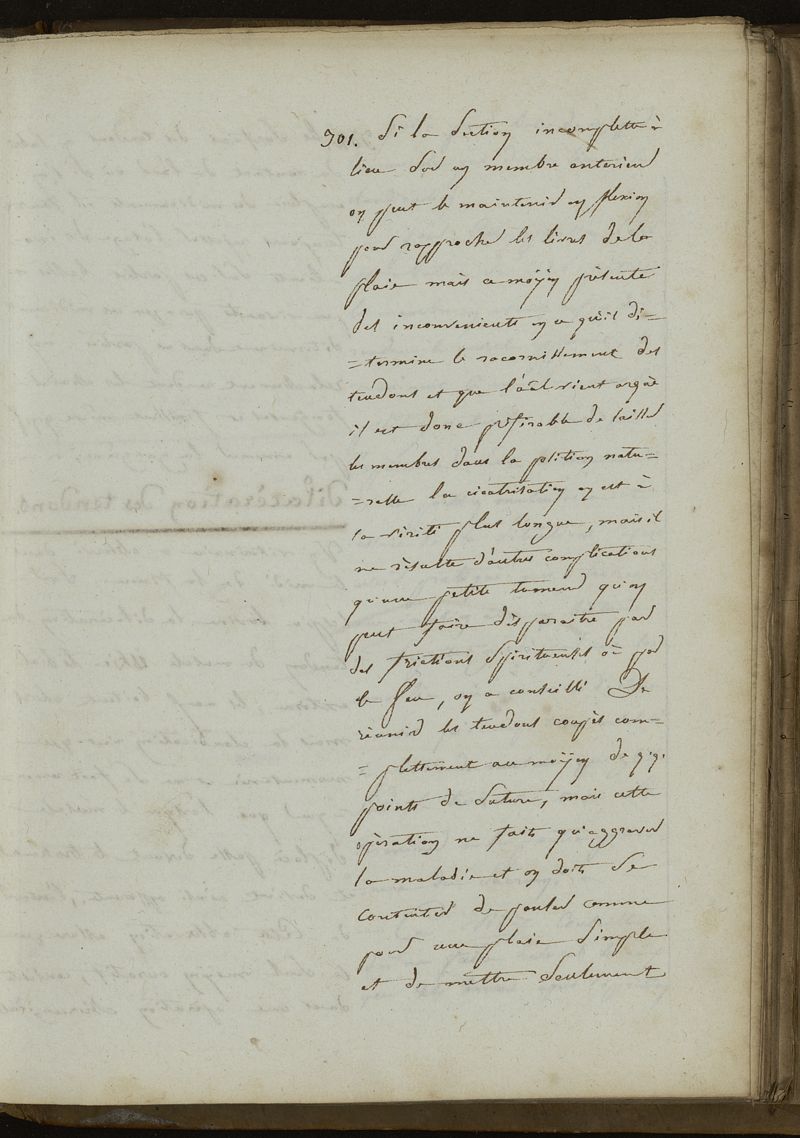 301. Si la Section incomplette à
lieu sur un membre anterieur
on peut le maintenir en flexion
pour rapprocher les levres de la
plaie mais ce moÿen présente
des inconvenients en ce qu'il dé=
=termine le racornissement des
tendons et que l'ânl vient arqué
il est donc préférable de laisser
les membres dans la position natu=
=relle la cicatrisation en est à
la vérité plus longue, mais il
ne résulte d'autres complications
qu'une petite tumeur qu'on
peut faire disparaitre par
des frictions spiritueuses où par
le feu, on a conseillé De
réunir les tendons coupés com=
=plettement au moÿen de q.q.
points de suture, mais cette
opération ne fait qu'aggraver
la maladie et on doit se
contenter de panser comme
pour une plaie simple
et de mettre seulement
dilacération des tendons.